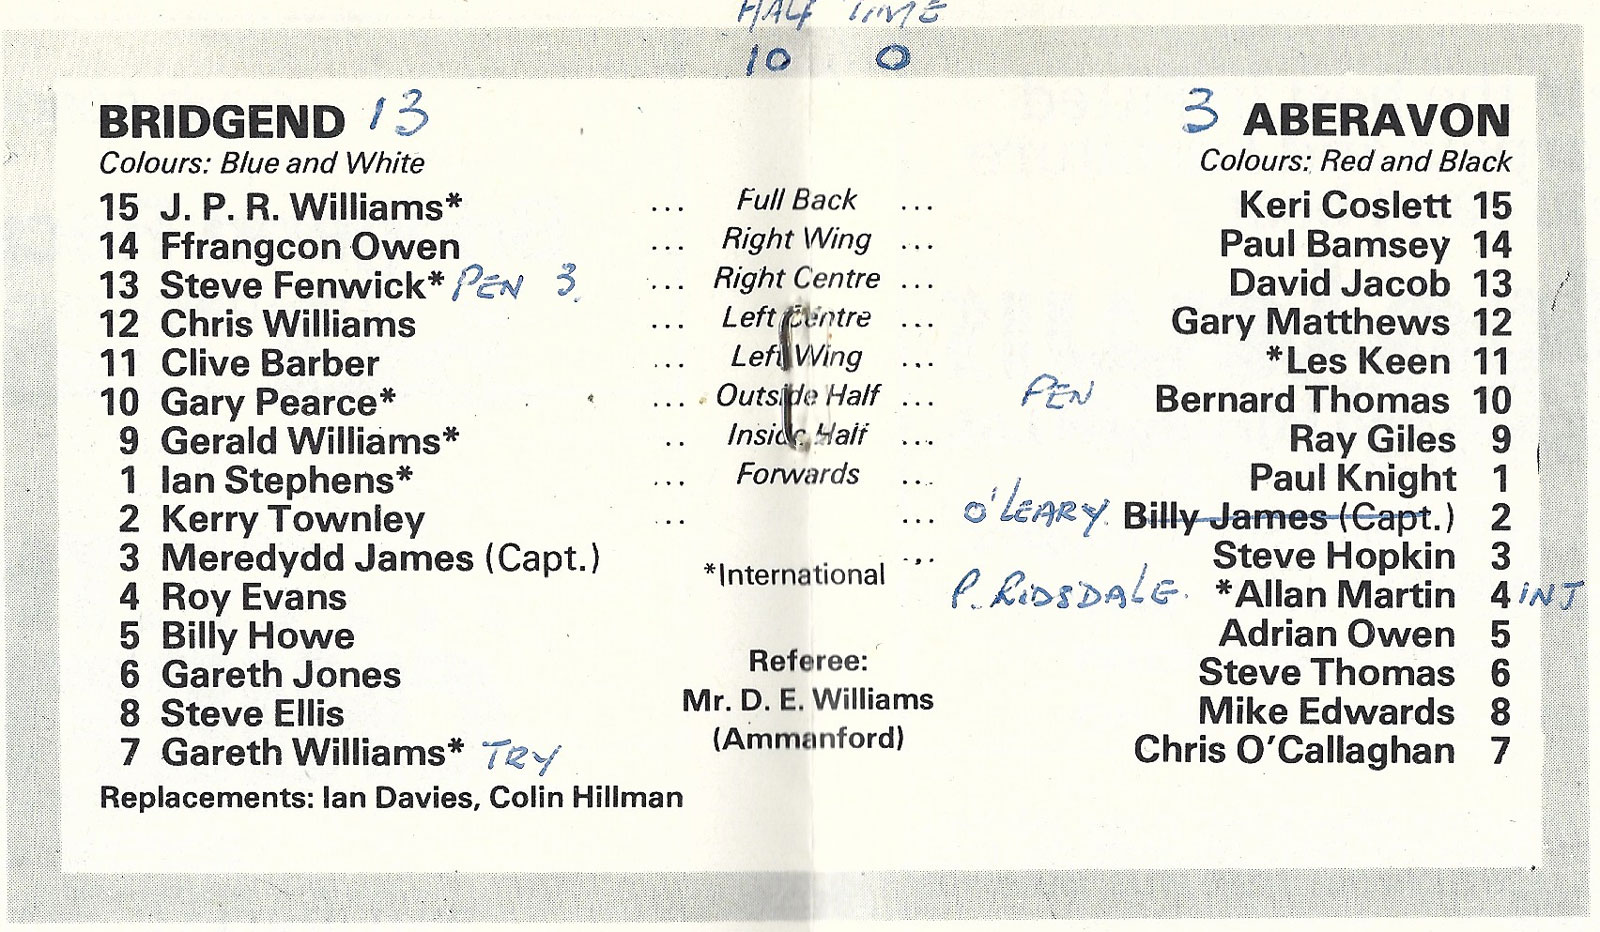 HALF TIME
10 0
BRIDGEND 13
Colours: Blue and White
3 ABERAVON
Colours: Red and Black
15 J. P. R. Williams* ... Full Back ... Keri Coslett 15
14 Ffrangcon Owen ... Right Wing ... Paul Bamsey 14
13 Steve Fenwick* PEN 3 ... Right Centre ... David Jacob 13
12 Chris Williams ... Left Centre ... Gary Matthews 12
11 Clive Barber ... Left Wing ... *Les Keen 11
10 Gary Pearce* ... Outside Half ... PEN Bernard Thomas 10
9 Gerald Williams* .. Inside Half ... Ray Giles 9
1 Ian Stephens* ... Forwards ... Paul Knight 1
2 Kerry Townley ... ... O'LEARY Billy James (Capt.) 2
3 Meredydd James (Capt.) ... Steve Hopkin 3
*International
4 Roy Evans P. RIDSDALE *Allan Martin 4 INJ
5 Billy Howe Adrian Owen 5
Referee:
6 Gareth Jones Steve Thomas 6
Mr. D. E. Williams
8 Steve Ellis Mike Edwards 8
(Ammanford)
7 Gareth Williams* TRY Chris O'Callaghan 7
Replacements: Ian Davies, Colin Hillman